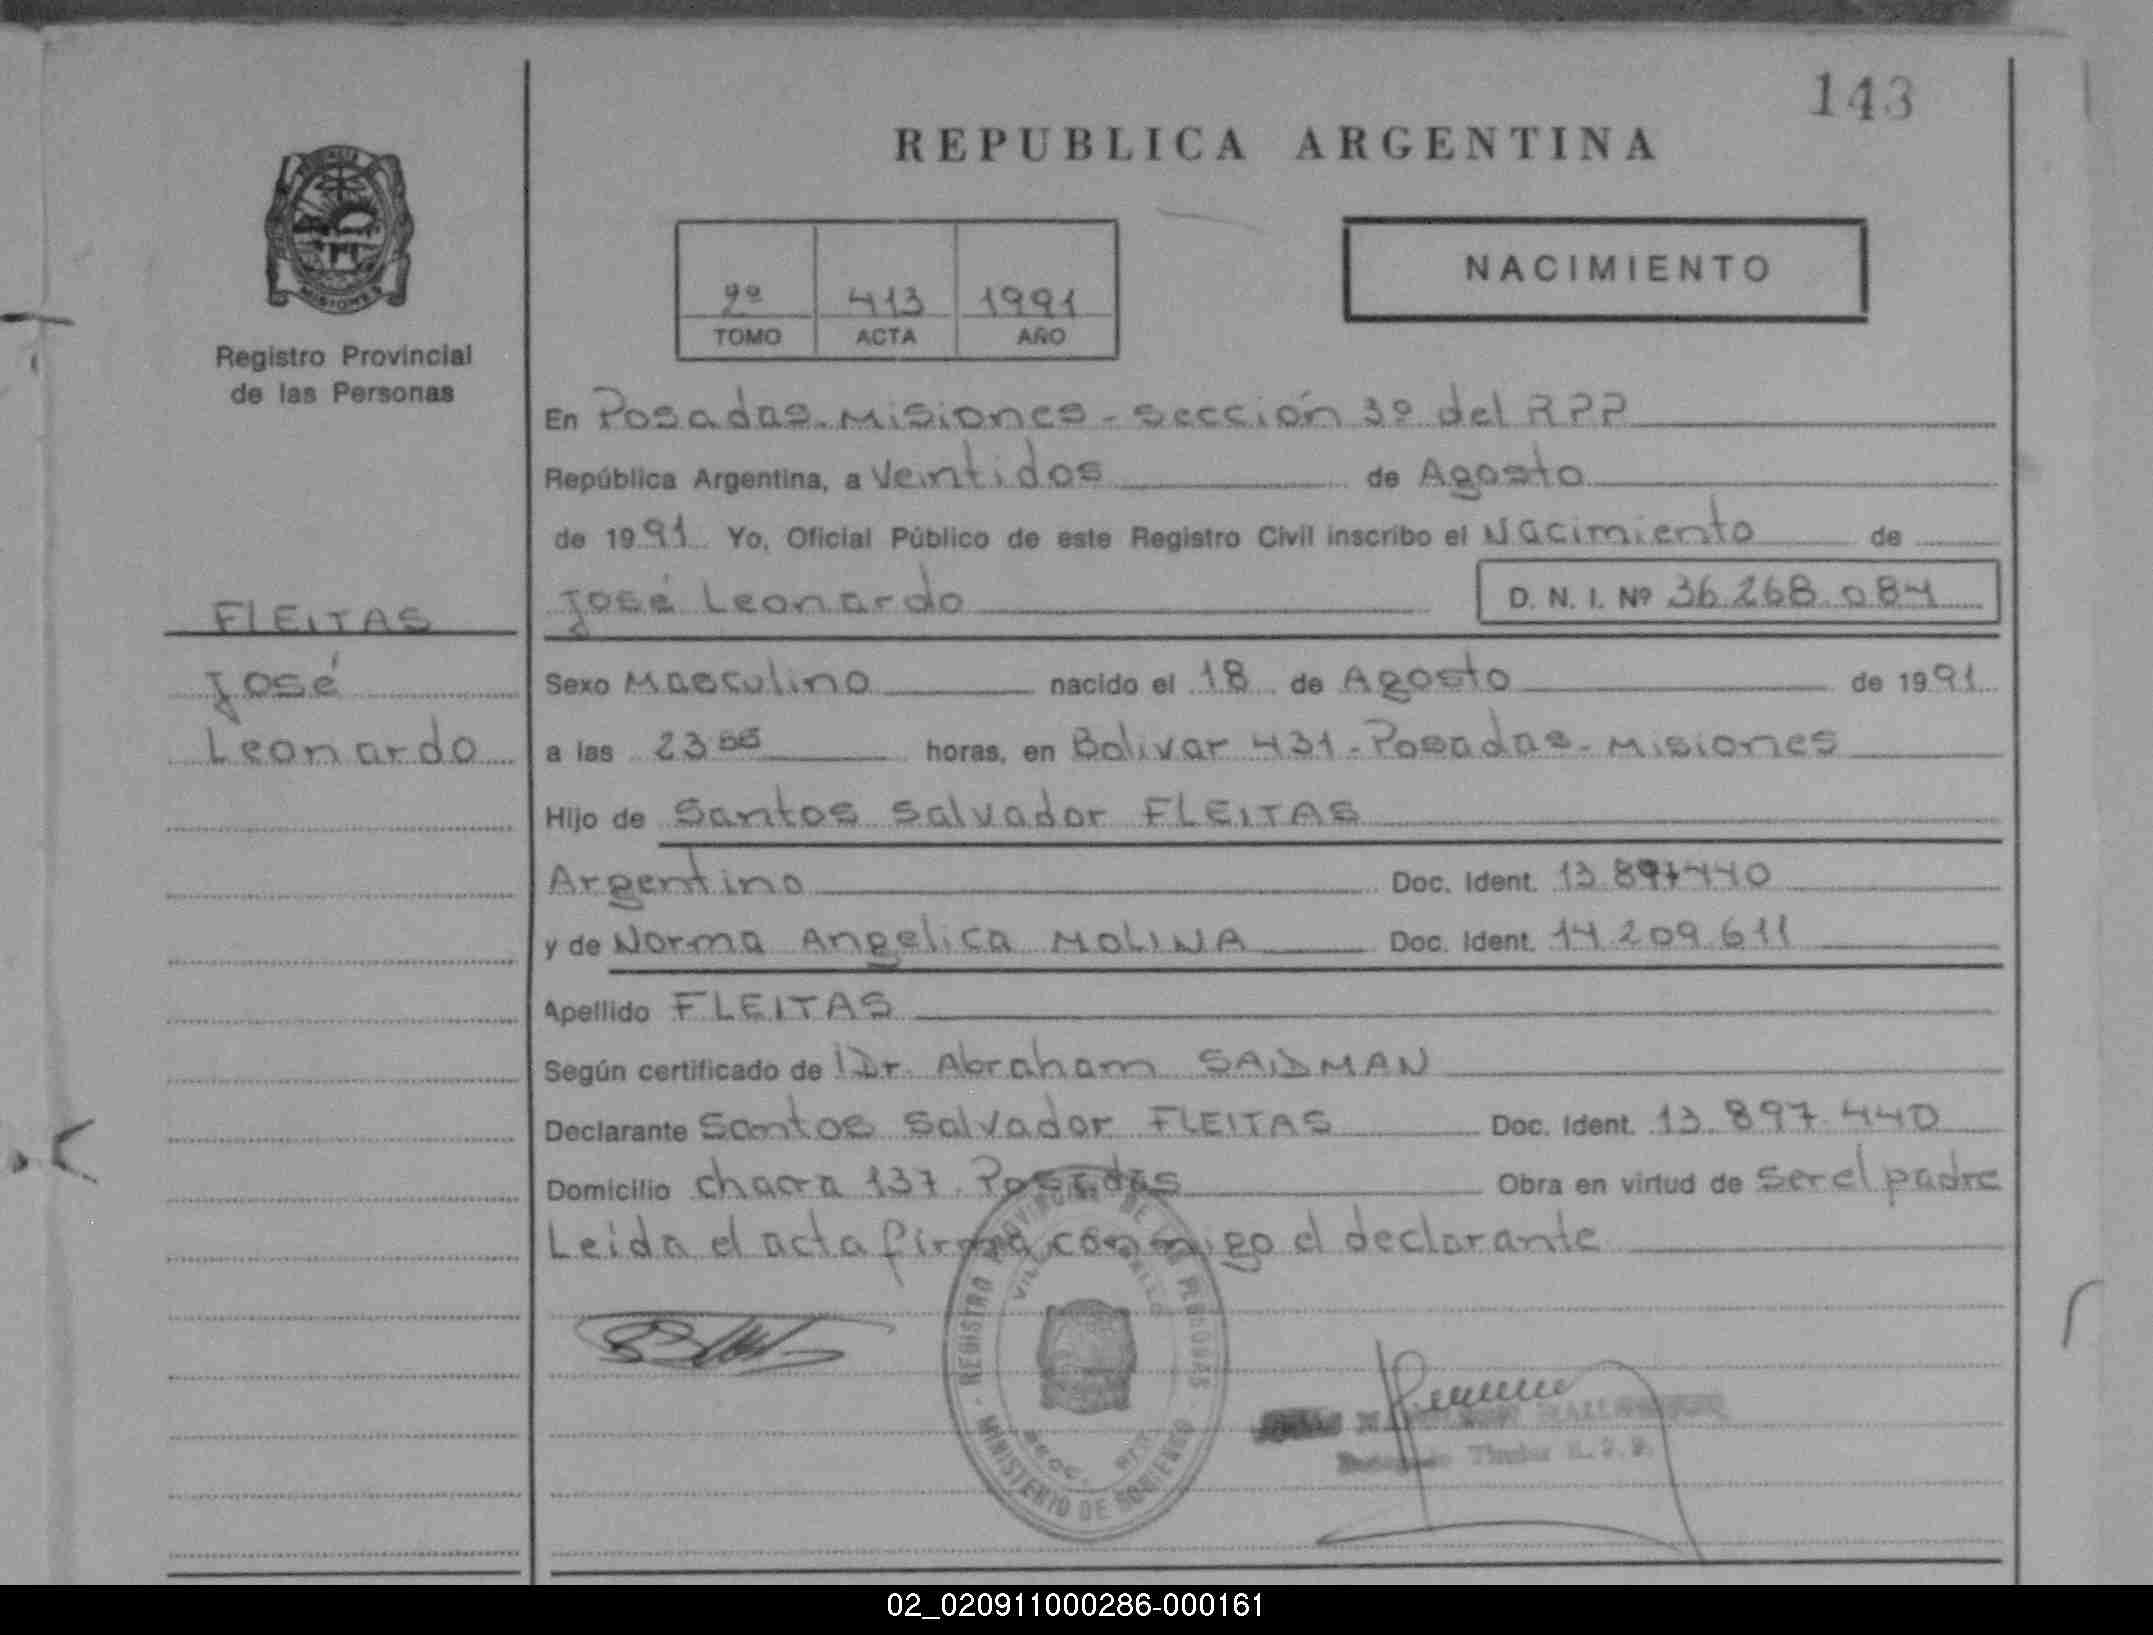 143
REPUBLICA ARGENTINA
MISIONES
NACIMIENTO
2º 413 1991
TOMO ACTA AÑO
Registro Provincial
de las Personas
En Posadas-Misiones-sección 3º del RPP
República Argentina, a Veintidos de Agosto
de 1991 Yo, Oficial Público de este Registro Civil inscribo el Nacimiento de
José Leonardo D. N. I. Nº 36.268.084
FLEITAS
José
Leonardo
Sexo Masculino nacido el 18 de Agosto de 1991
a las 23 horas, en Bolivar 431-Posadas-Misiones
Hijo de Santos Salvador FLEITAS
Argentino Doc. Ident. 13.897440
y de Norma Angelica MOLINA Doc. Ident. 14.209.611
Apellido FLEITAS
Según certificado de Dr. Abraham SAIDMAN
Declarante Santos Salvador FLEITAS Doc. Ident. 13.897.440
Domicilio chacra 137. Posadas Obra en virtud de ser el padre
Leida el acta firma conmigo el declarante
REGISTRO PROVINCIAL DE LAS PERSONAS
MINISTERIO DE GOBIERNO
Titular R.P.P.
02_020911000286-000161